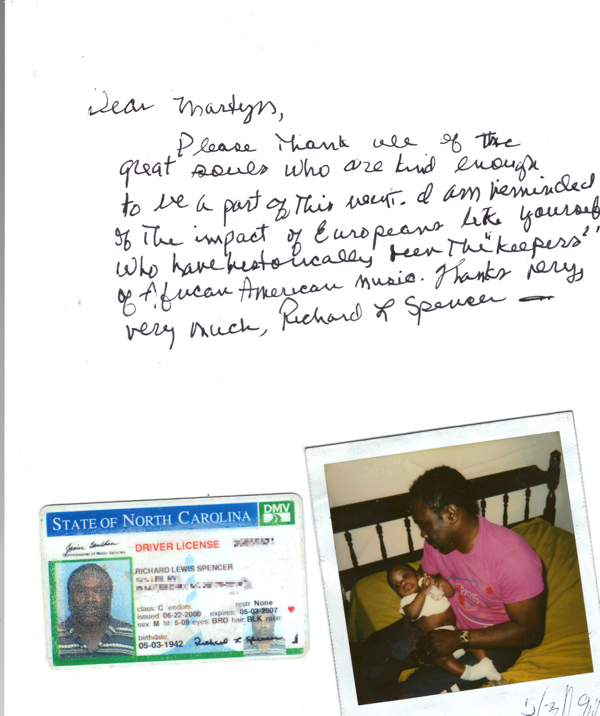 Dear Martyn,
Please Thank all of the
great souls who are kind enough
to be a part of This event. I am reminded
of The impact of Europeans like yourself
who have historically been The "keepers"
of African American music. Thanks very,
very much, Richard L Spencer
STATE OF NORTH CAROLINA DMV
Commissioner of Motor Vehicles
DRIVER LICENSE
RICHARD LEWIS SPENCER
class: C endors:
restr: None
issued: 06-22-2000 expires: 05-03-2007
sex: M ht: 5-09 eyes: BRO hair: BLK race:
birthdate:
05-03-1942 Richard L Spencer